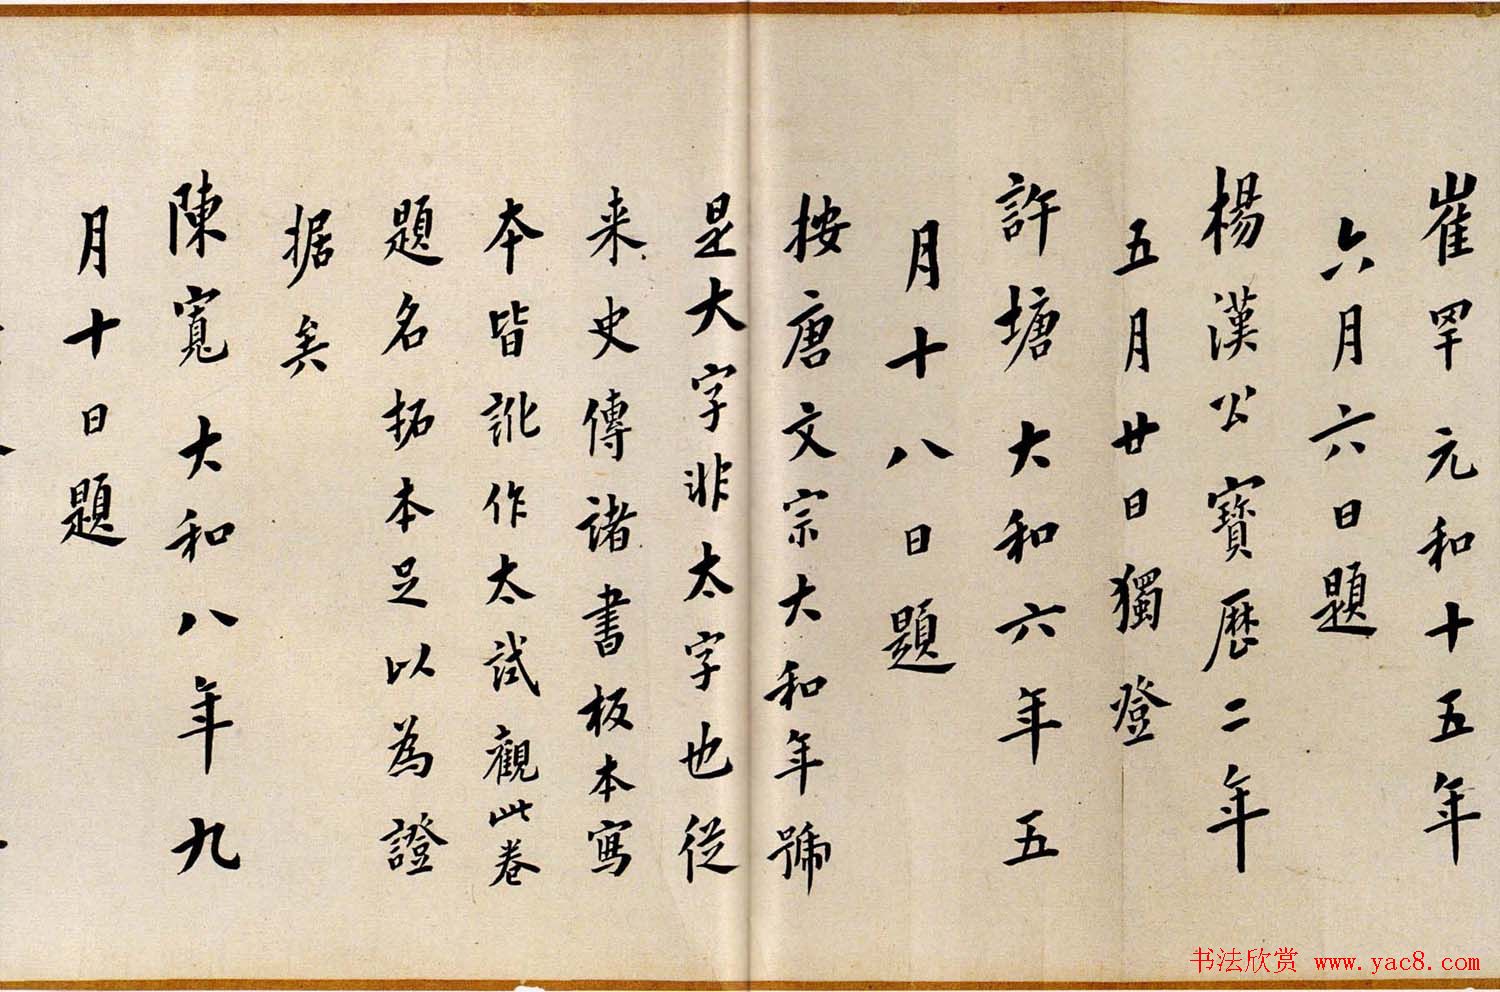 崔罕 元和十五年
六月六日題
楊漢公 寶歷二年
五月廿日獨登
許塘 大和六年五
月十八日題
按唐文宗大和年號
是大字非太字也從
来史傳諸書板本寫
本皆訛作太試觀此卷
題名拓本足以為證
据矣
陳寬 大和八年九
月十日題
书法欣赏 www.yac8.com